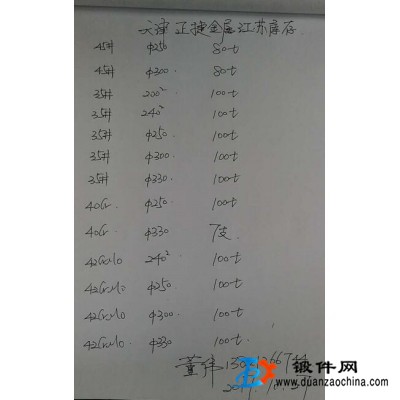 天津正捷金属江苏库存
45# φ250 80t
45# φ300. 80t
35# 200² 100t
35# 240² 100t
35# φ250 100t
35# φ300. 100t
35# φ330. 100t
40Cr. φ250 100t
40Cr. φ330 7支.
42CrMo 240² 100t
42CrMo φ250 100t
42CrMo φ300. 100t
42CrMo φ330 100t.
董伟
锻件网
www.duanzaochina.com